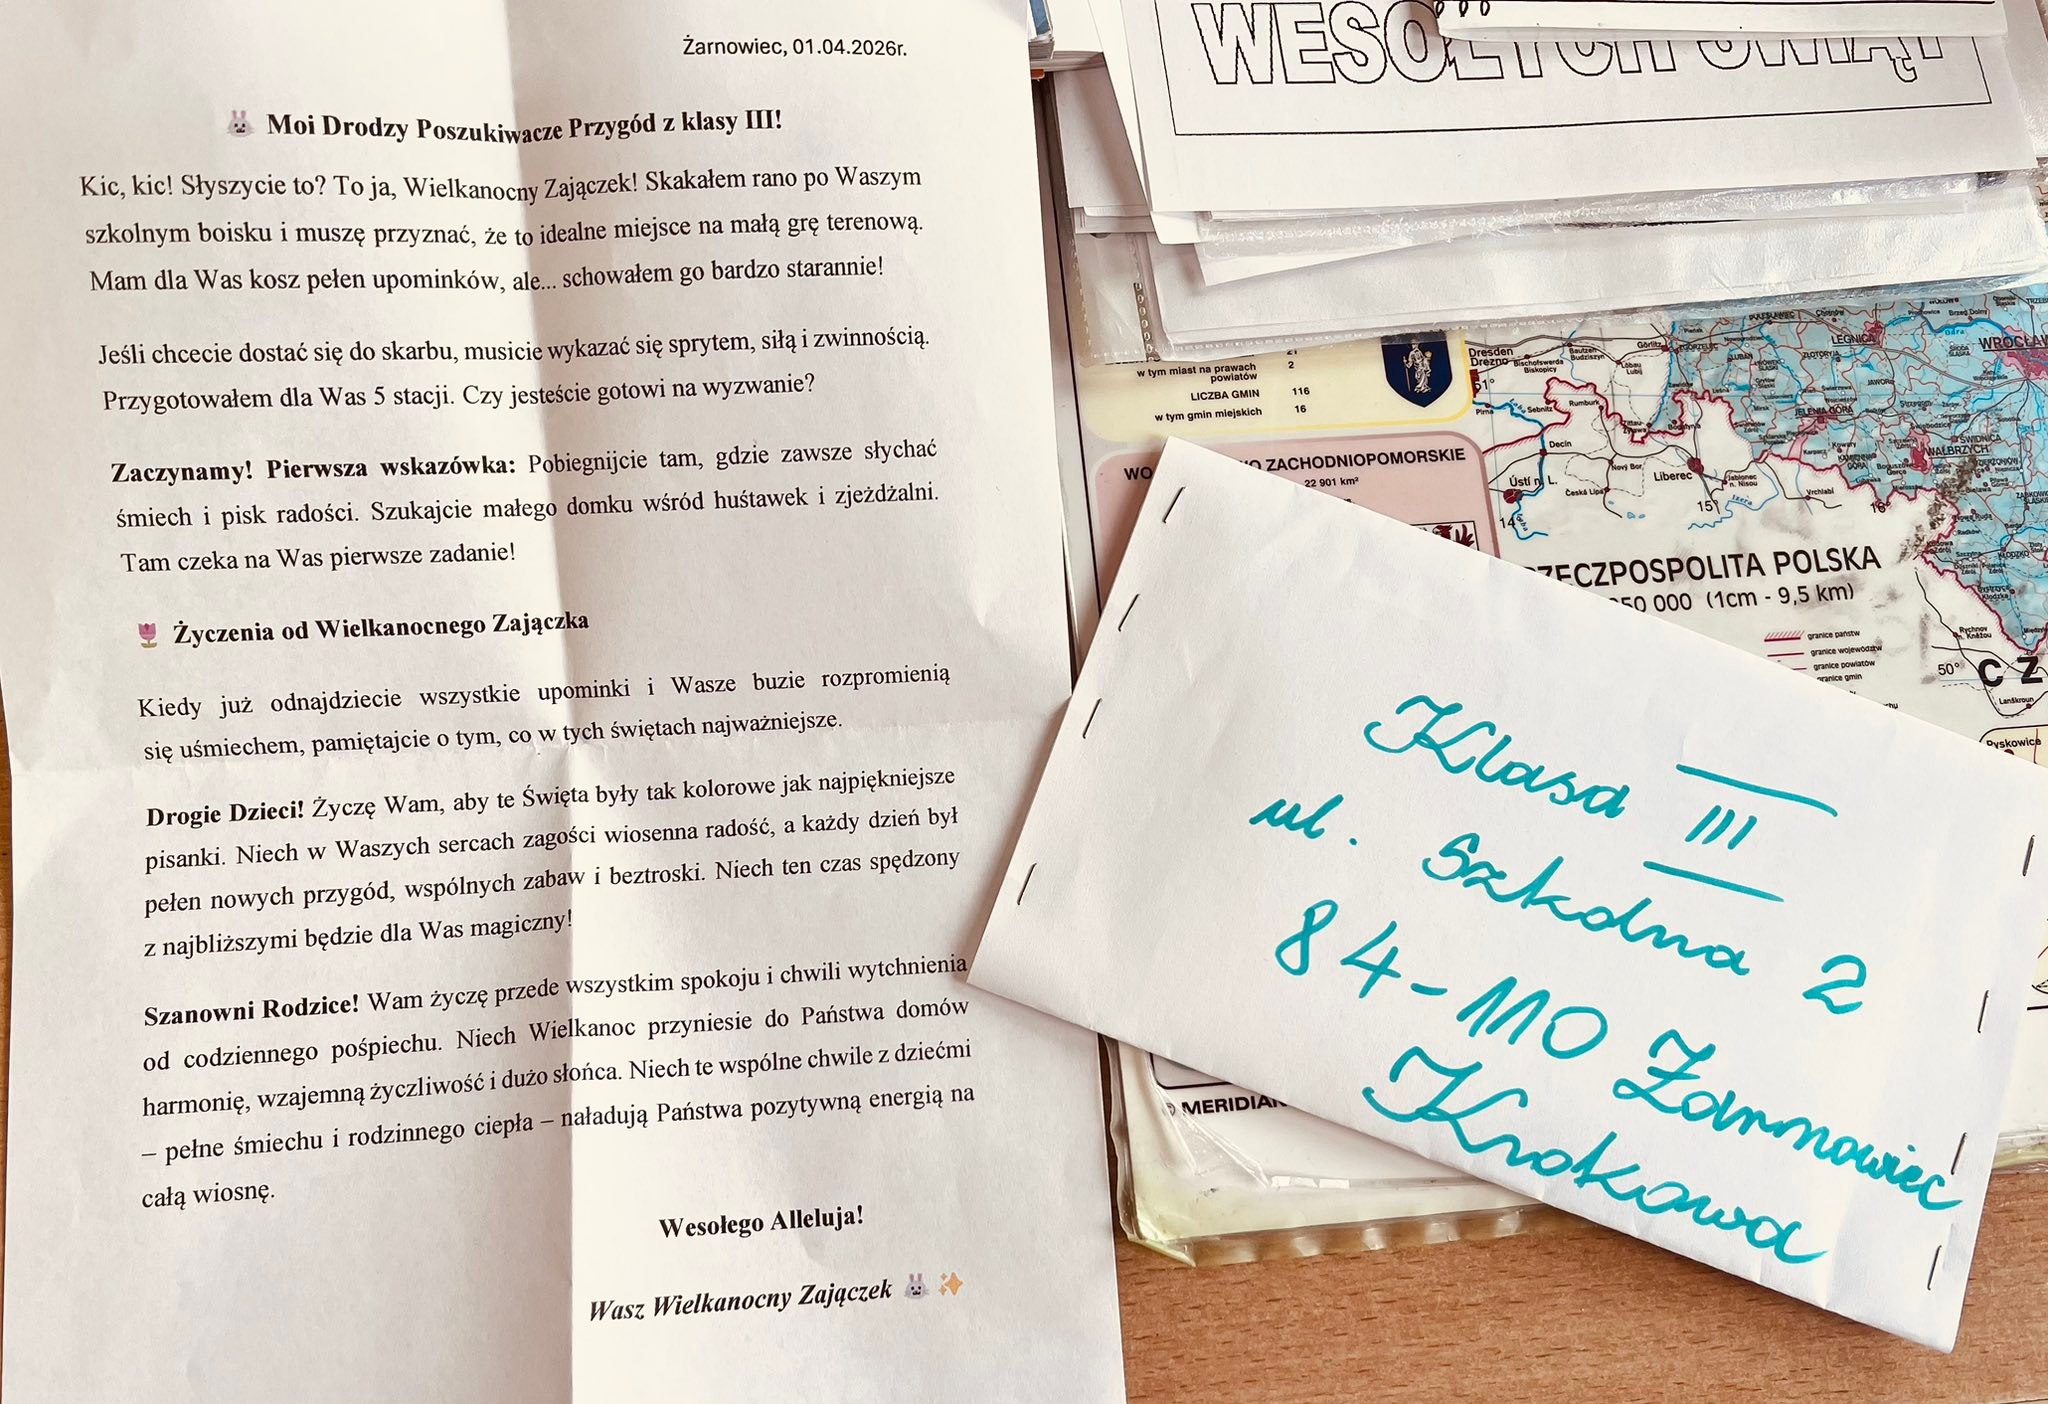 Żarnowiec, 01.04.2026r.
🐰 Moi Drodzy Poszukiwacze Przygód z klasy III!
Kic, kic! Słyszycie to? To ja, Wielkanocny Zajączek! Skakałem rano po Waszym
szkolnym boisku i muszę przyznać, że to idealne miejsce na małą grę terenową.
Mam dla Was kosz pełen upominków, ale... schowałem go bardzo starannie!
Jeśli chcecie dostać się do skarbu, musicie wykazać się sprytem, siłą i zwinnością.
Przygotowałem dla Was 5 stacji. Czy jesteście gotowi na wyzwanie?
Zaczynamy! Pierwsza wskazówka: Pobiegnijcie tam, gdzie zawsze słychać
śmiech i pisk radości. Szukajcie małego domku wśród huśtawek i zjeżdżalni.
Tam czeka na Was pierwsze zadanie!
🌷 Życzenia od Wielkanocnego Zajączka
Kiedy już odnajdziecie wszystkie upominki i Wasze buzie rozpromienią
się uśmiechem, pamiętajcie o tym, co w tych świętach najważniejsze.
Drogie Dzieci! Życzę Wam, aby te Święta były tak kolorowe jak najpiękniejsze
pisanki. Niech w Waszych sercach zagości wiosenna radość, a każdy dzień był
pełen nowych przygód, wspólnych zabaw i beztroski. Niech ten czas spędzony
z najbliższymi będzie dla Was magiczny!
Szanowni Rodzice! Wam życzę przede wszystkim spokoju i chwili wytchnienia
od codziennego pośpiechu. Niech Wielkanoc przyniesie do Państwa domów
harmonię, wzajemną życzliwość i dużo słońca. Niech te wspólne chwile z dziećmi
– pełne śmiechu i rodzinnego ciepła – naładują Państwa pozytywną energią na
całą wiosnę.
Wesołego Alleluja!
Wasz Wielkanocny Zajączek 🐰 ✨
WESOŁYCH ŚWIĄT
21
w tym miast na prawach 2
powiatów
LICZBA GMIN 116
w tym gmin miejskich 16
ZACHODNIOPOMORSKIE
22 901 km²
Dresden
Drezno
Bischofswerda
Biskopicy
Bautzen
Budziszyn
Görlitz
ZGORZELEC
Löbau
Lubij
LEGNICA
WROCŁAW
51°
Pirna
Sebnitz
Rumburk
JAWOR
JELENIA GÓRA
ŚWIDNICA
WAŁBRZYCH
Děčín
Nový Bor
Liberec
Jablonec
n. Nisou
Ústí n. L.
Česká Lípa
Vrchlabí
14°
15°
16°
Jizera
RZECZPOSPOLITA POLSKA
50 000 (1cm - 9,5 km)
granice państw
granice województw
granice powiatów
granice gmin
50°
C Z
Rychnov
n. Kněžou
Lanškroun
Pyskowice
© MERIDIAN
Klasa III
ul. Szkolna 2
84-110 Żarnowiec
Krokowa